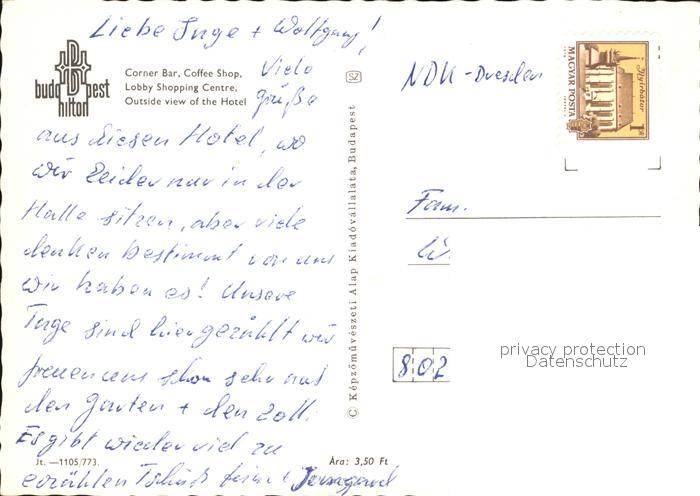 Liebe Inge + Wolfgang!
budapest
hilton
Corner Bar, Coffee Shop,
Lobby Shopping Centre,
Outside view of the Hotel
Viele
Grüße
aus diesem Hotel, wo
wir leider nur in der
Halle sitzen, aber viele
denken bestimmt von uns
wir haben es! Unsere
Tage sind hier gezählt wir
freuen uns schon sehr auf
den Garten + den
Es gibt wieder viel zu
erzählen Tschüß
Irmgard
Jt. —1105/773.
Ára: 3,50 Ft
SZ
© Képzőművészeti Alap Kiadóvállalata, Budapest
NDK - Dresden
Nyírbátor
1 Ft
MAGYAR POSTA
Fam.
W.
802
privacy protection
Datenschutz